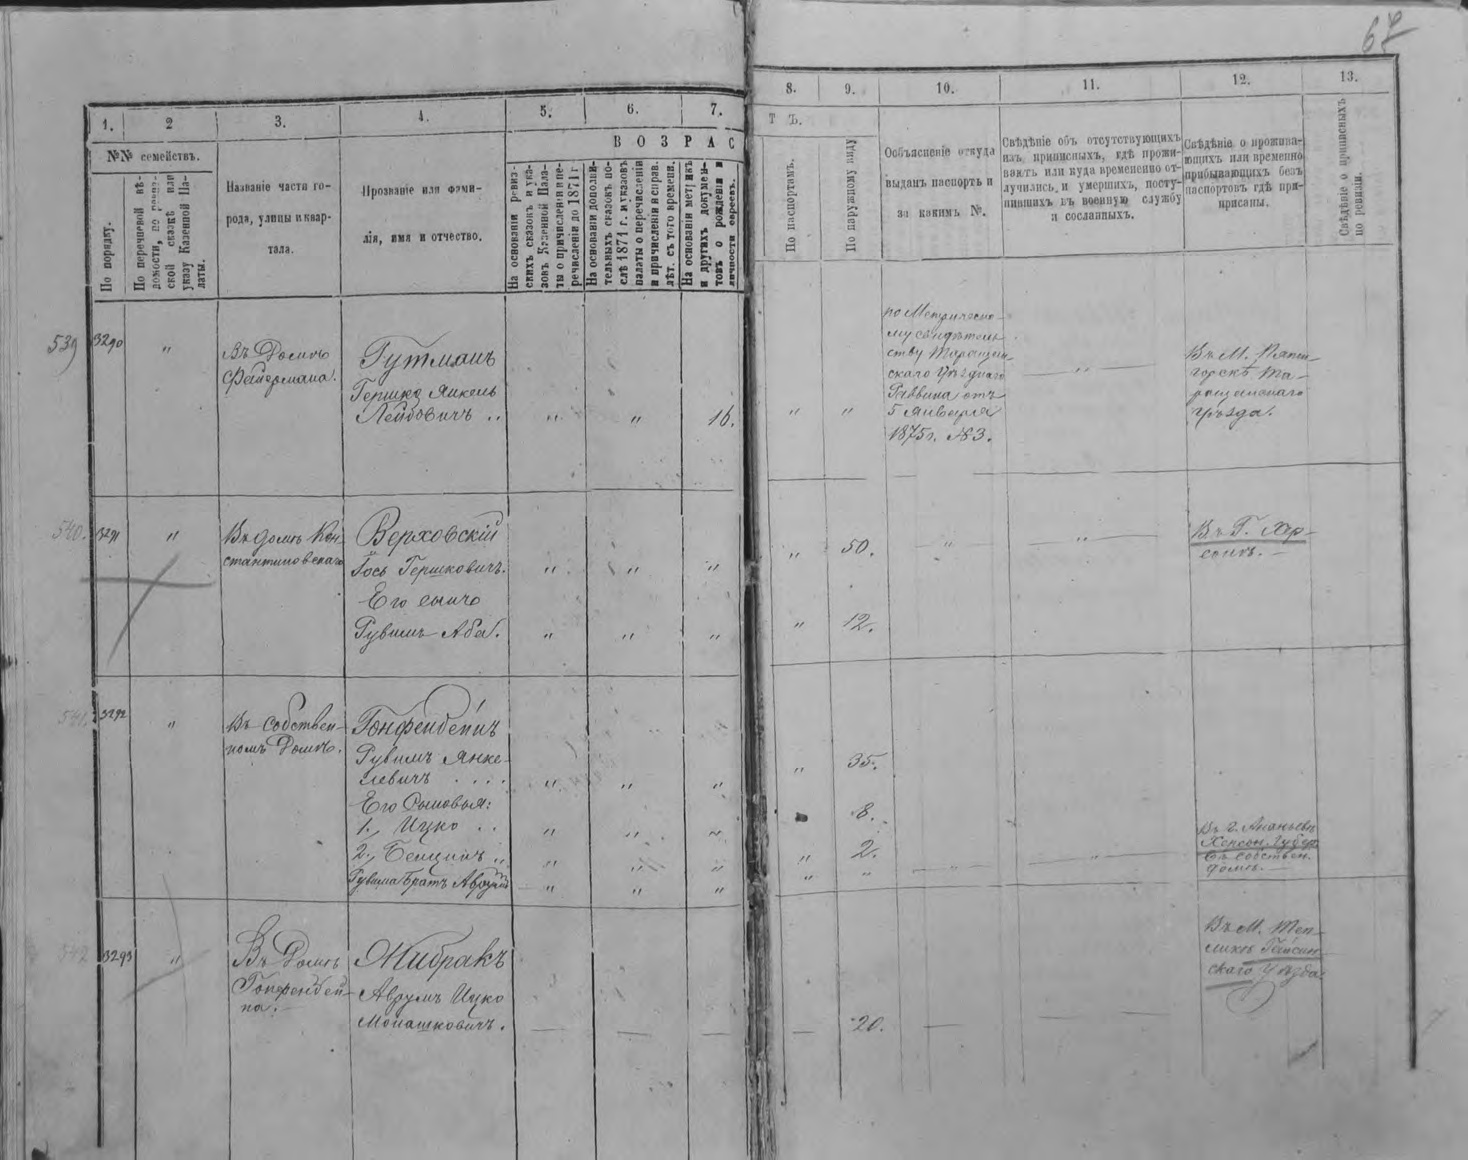 67
1. 2 3. 4. 5. 6. 7. 8. 9. 10. 11. 12. 13.
ВОЗРАС Т Ъ.
№№ семействъ.
По порядку.
По перечневой вѣ-
домости, по ревиз-
ской сказкѣ или
указу Казенной Па-
латы.
Названіе части го-
рода, улицы и квар-
тала.
Прозваніе или фами-
лія, имя и отчество.
На основаніи ревиз-
скихъ сказокъ и ука-
зовъ Казенной Пала-
ты о причисленіи и пе-
речисленіи до 1871 г.
На основаніи дополни-
тельныхъ сказокъ по-
слѣ 1871 г. и указовъ
палаты о перечисленіи
и причисленіи и справ.
лѣт. съ того времени.
На основаніи метрикъ
и другихъ докумен-
товъ о рожденіи и
личности евреевъ.
По паспортамъ.
По наружному виду
Объясненіе откуда
выданъ паспортъ и
за какимъ №.
Свѣдѣніе объ отсутствующихъ
изъ приписныхъ, гдѣ прожи-
ваютъ или куда временно от-
лучились, и умершихъ, посту-
пившихъ въ военную службу
и сосланныхъ.
Свѣдѣніе о прожива-
ющихъ или временно
прибывающихъ безъ
паспортовъ гдѣ при-
писаны.
Свѣдѣніе о приписныхъ
по ревизіи.
539 3290 " Въ Домѣ
Фейермана.
Гутманъ
Гершко Янкель
Лейбовичъ .. " " 16. " "
по Метрическо-
му свидѣтель-
ству Таращан-
скаго Уѣзднаго
Раввина отъ
5 Января
1875 г. №3.
— " —
Въ М. Пяти-
горскѣ Та-
ращанскаго
Уѣзда.
540. 3291 " Въ домѣ Кон-
стантиновскаго
Верховскій
Іось Гершковичъ. " " " " 50. — " — — " —
Его сынъ
Рувимъ Аба. " " " " 12.
Въ Г. Хер-
сонѣ. —
541. 3292 " Въ собствен-
номъ Домѣ.
Гонфенбейнъ
Рувимъ Янке-
левичъ . . . . " " " " 35.
Его Сыновья:
1., Ицко . . " " " 8.
2., Бенціонъ " " " " " 2.
Рувима Братъ Аврумъ " " " " " — " — — " —
Въ г. Ананьевѣ
Херсон. Губер.
въ собствен.
домѣ. —
542 3293 " Въ Домѣ
Гонфенбей-
на. —
Мибракъ
Аврумъ Ицко
Монашковичъ. — — — — 20. — —
Въ М. Теп-
ликѣ Гайсин-
скаго Уѣзда